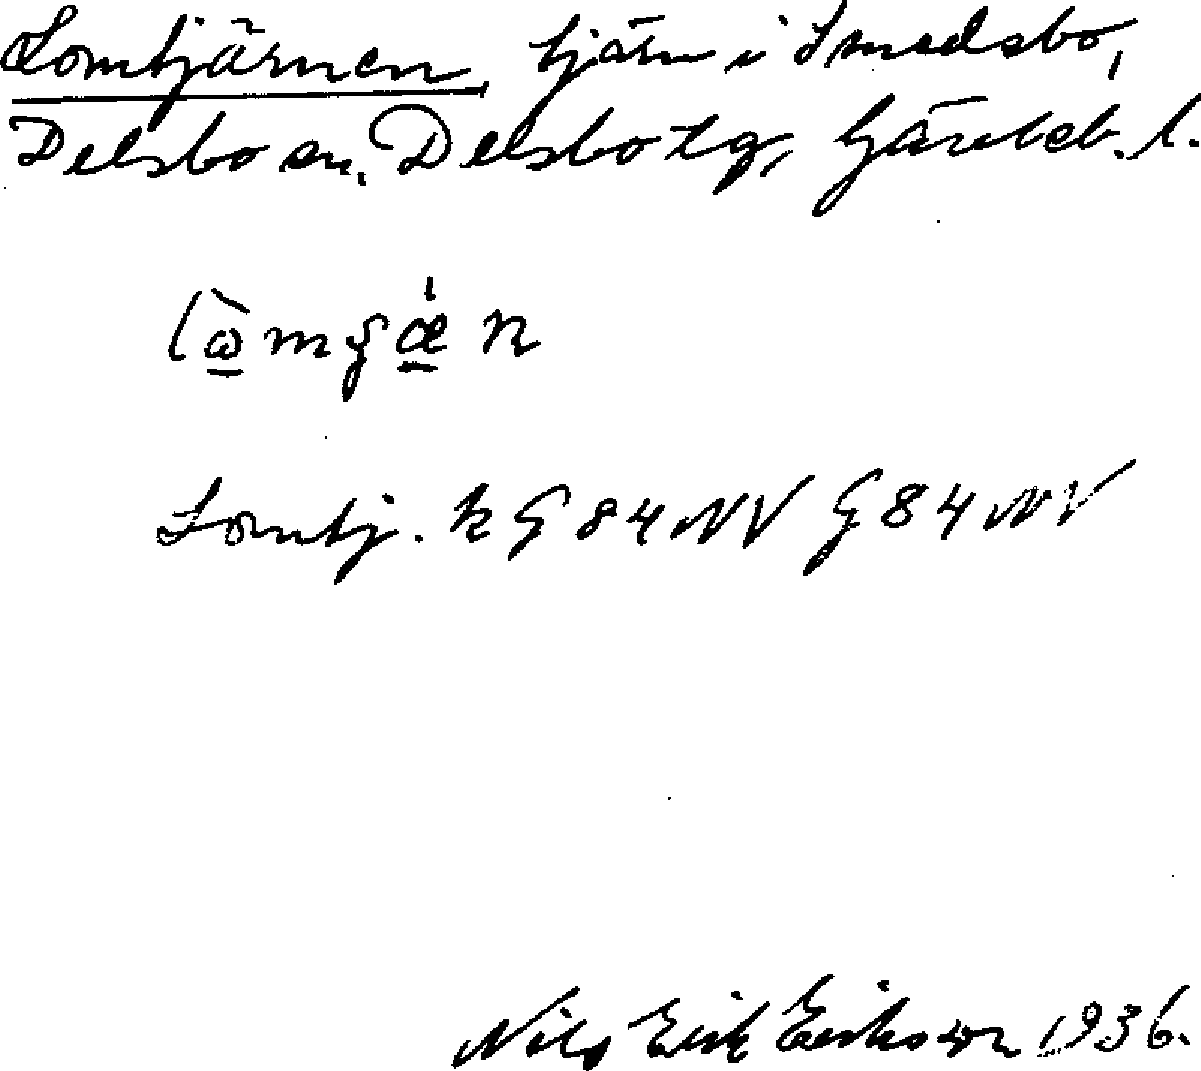 Lomtjärnen, tjärn i Smedsbo,
Delsbo sn, Delsbo tg, Gävleb. l.
Lomtj. k G 84 NV G 84 NV
Nils Erik Eriksson 1936.